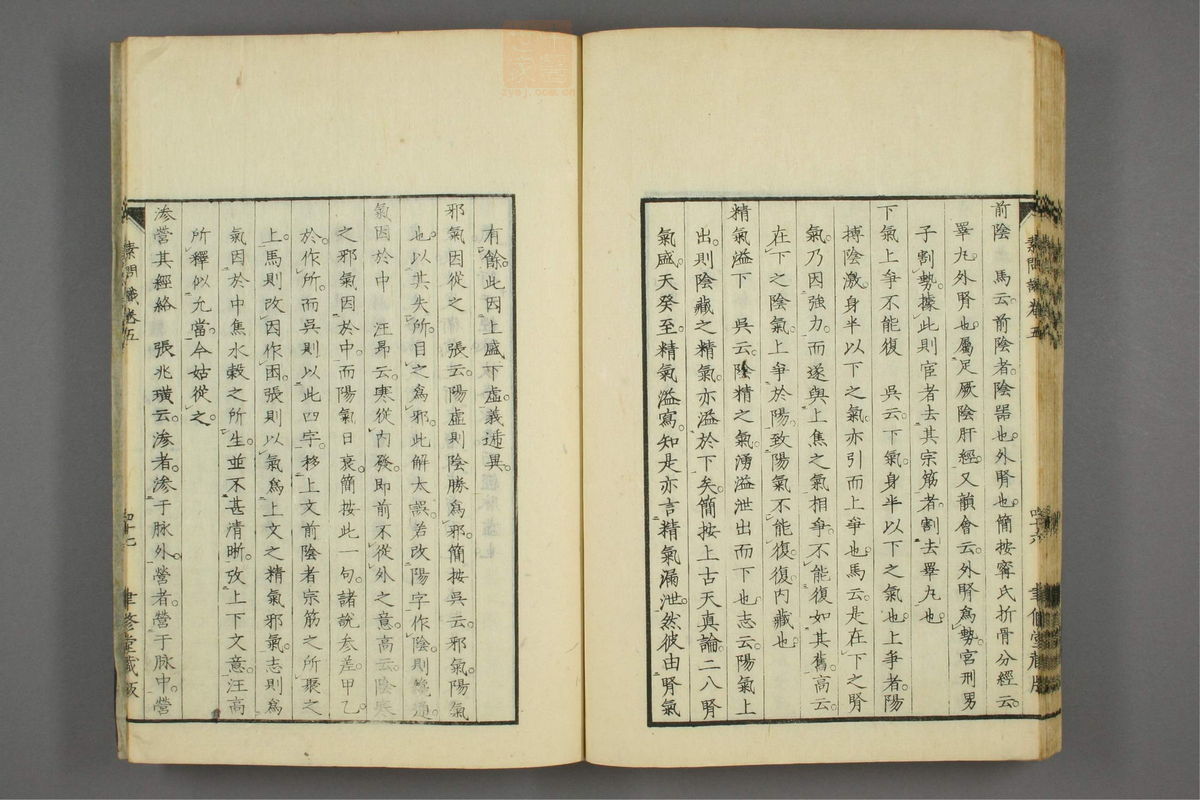 前陰　馬云。前陰者。陰器也。外腎也。簡按甯氏折骨分經云。
睪丸。外腎也。屬足厥陰肝經。又韻會云。外腎爲勢。宮刑男
子割勢。據此則宦者去其宗筋者。割去睪丸也。
下氣上爭不能復　吳云。下氣。身半以下之氣也。上爭者。陽
搏陰激。身半以下之氣。亦引而上爭也。馬云。是在下之腎
氣。乃因強力。而遂與上焦之氣相爭。不能復如其舊。高云。
在下之陰氣。上爭於陽。致陽氣不能復。復。内藏也。
精氣溢下　吳云。陰精之氣。湧溢泄出而下也。志云。陽氣上
出。則陰藏之精氣。亦溢於下矣。簡按上古天真論。二八腎
氣盛。天癸至。精氣溢寫。知是亦言精氣漏泄。然彼由腎氣
素問識卷五
聿修堂藏版
有餘。此因上盛下虛。義遞異。
邪氣因從之　張云。陽虛則陰勝爲邪。簡按吳云。邪氣陽氣
也。以其失所。目之爲邪。此解大誤。若改陽字作陰。則穩適
氣因於中　汪昂云。寒從内發。即前不從外之意。高云。陰寒
之邪氣因於中。而陽氣日衰。簡按此一句。諸說參差。甲乙。
於。作所。而吳則以此四字。移上文前陰者宗筋之所聚之
上。馬則改因作困。張則以氣爲上文之精氣邪氣。志則爲
氣因於中焦水穀之所生。並不甚清晰。攷上下文意。汪高
所釋似允當。今姑從之。
滲營其經絡　張兆璜云。滲者。滲于脉外。營者。營于脉中。營
素問識卷五
四十七
聿修堂藏版